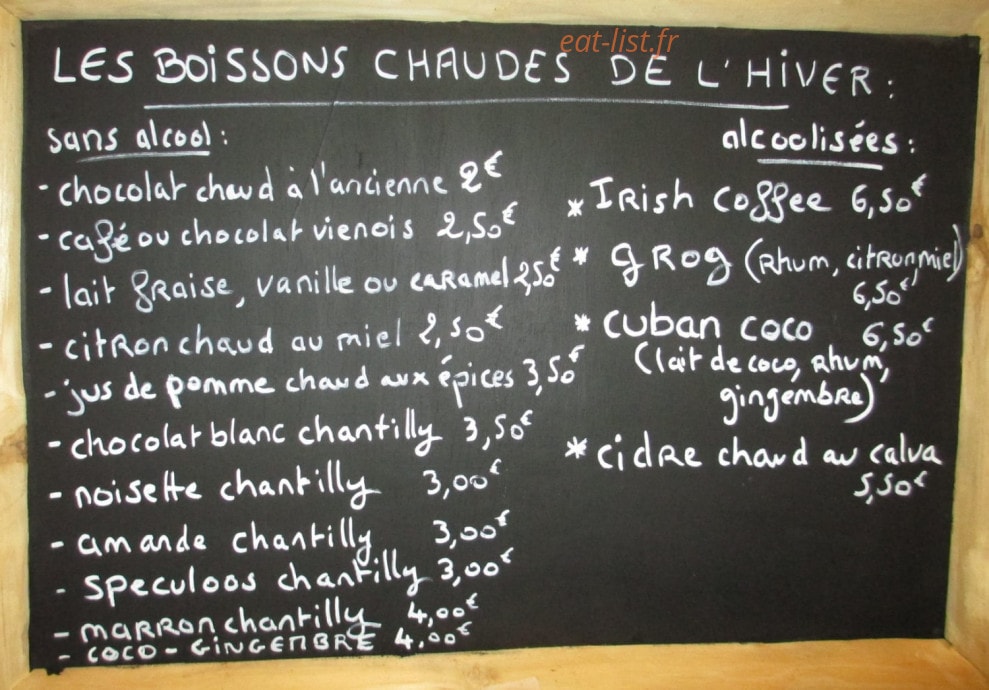 eat-list.fr
LES BOISSONS CHAUDES DE L'HIVER :
sans alcool :
- chocolat chaud à l'ancienne 2€
- café ou chocolat vienois 2,50€
- lait fraise, vanille ou caramel 2,50€
- citron chaud au miel 2,50€
- jus de pomme chaud aux épices 3,50€
- chocolat blanc chantilly 3,50€
- noisette chantilly 3,00€
- amande chantilly 3,00€
- speculoos chantilly 3,00€
- marron chantilly 4,00€
- COCO - GINGEMBRE 4.00€
alcoolisées :
* Irish coffee 6,50€
* grog (rhum, citron, miel)
6,50€
* cuban coco 6,50€
(lait de coco, rhum,
gingembre)
* cidre chaud au calva
5,50€